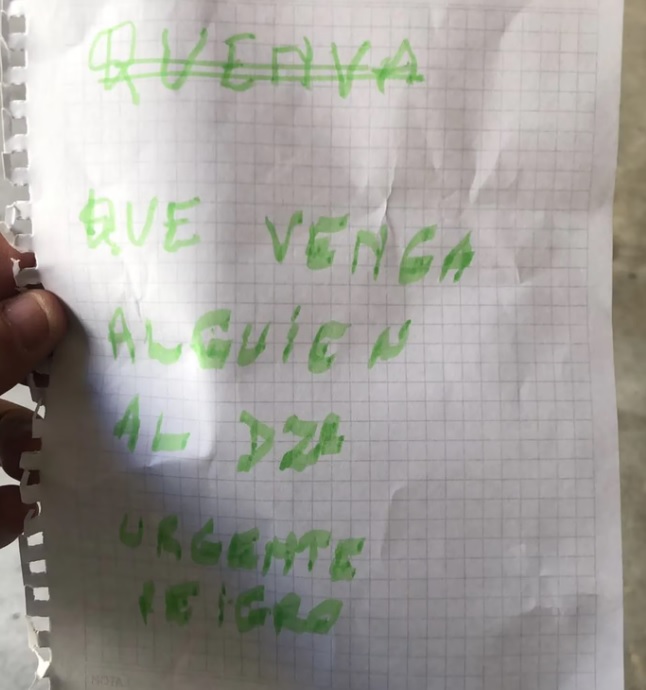 QUENVA
QUE VENGA
ALGUIEN
AL
URGENTE
PEIGRO